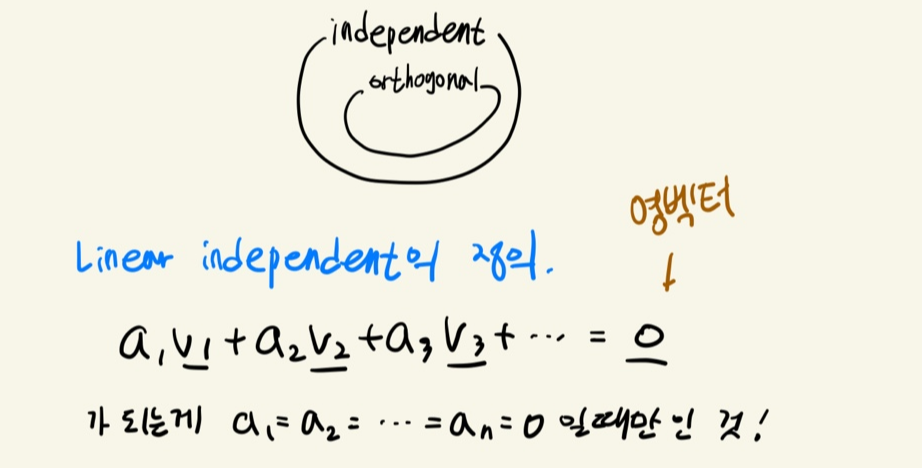 independent
orthogonal
영벡터
↓
Linear independent의 정의.
a₁v₁ + a₂v₂ + a₃v₃ + ··· = 0
가 되는게 a₁ = a₂ = ··· = aₙ = 0 일때만 인 것!